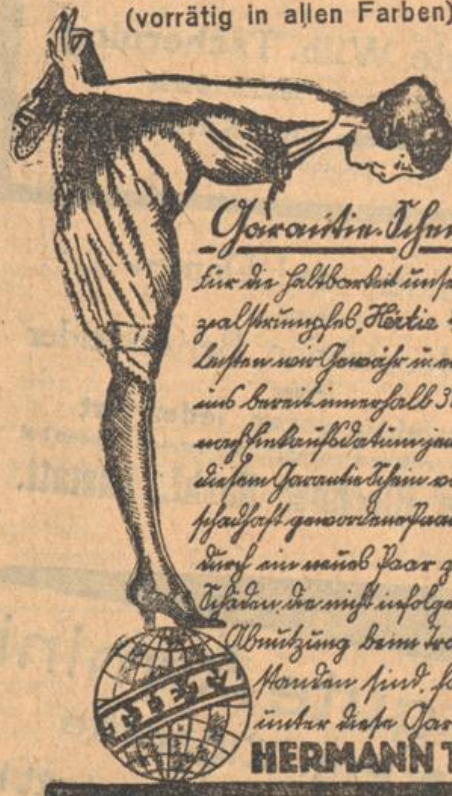 (vorrätig in allen Farben)
Garantie-Schein
Für die Haltbarkeit unse
zialstrumpfes „Hertie
leisten wir Gewähr u. er
uns bereit innerhalb 3
nach Einkaufsdatum jen
diesem Garantie Schein vo
schadhaft gewordene Paar
durch ein neues Paar z
Schäden, die nicht infolge
Abnutzung beim Tra
standen sind, fa
unter diese Gar
TIETZ
HERMANN T